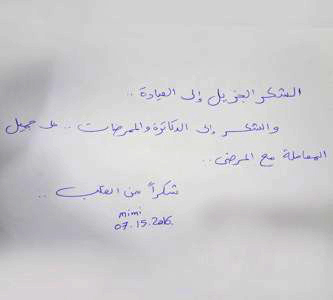 الشكر الجزيل إلى العيادة ..
والشكر إلى الدكاترة والممرضات .. على جميل
المعاملة مع المرضى ..
شكراً من القلب ..
mimi
07.15.2016.